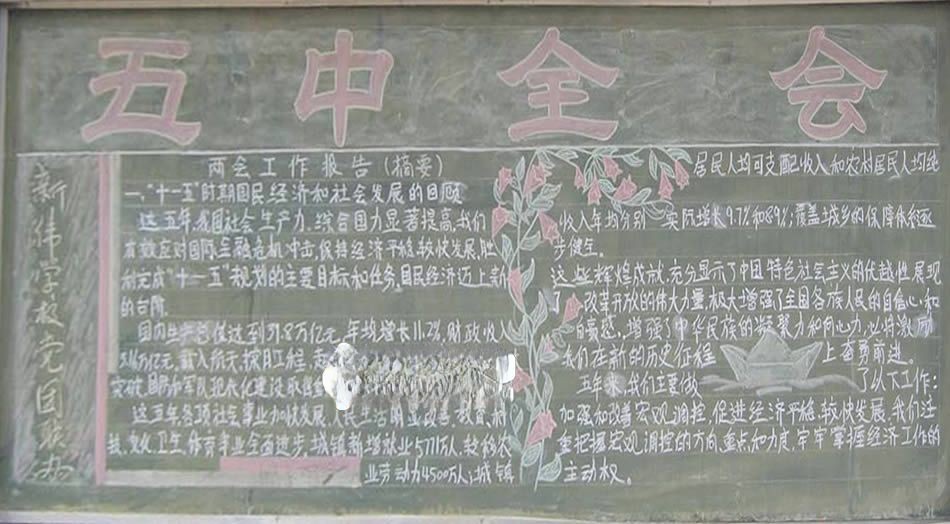 五中全会
新伟学校党团联办
两会工作报告(摘要)
一、"十一五"时期国民经济和社会发展的回顾
这五年,我国社会生产力、综合国力显著提高,我们
有效应对国际金融危机冲击,保持经济平稳较快发展,胜
利完成"十一五"规划的主要目标和任务,国民经济迈上新
的台阶。
国内生产总值达到39.8万亿元,年均增长11.2%,财政收入
万亿元。载人航天、探月工程、
突破,国防和军队现代化建设取得
这五年,各项社会事业加快发展、人民生活明显改善。教育、科
技、文化、卫生、体育事业全面进步。城镇新增就业5771万人,转移农
业劳动力4500万人;城镇
居民人均可支配收入和农村居民人均纯
收入年均分别 实际增长9.7%和8.9%;覆盖城乡的保障体系逐
步健全。
这些辉煌成就,充分显示了中国特色社会主义的优越性,展现
了 改革开放的伟大力量,极大增强了全国各族人民的自信心和
自豪感,增强了中华民族的凝聚力和向心力,必将激励
我们在新的历史征程 上奋勇前进。
五年来,我们主要做 了以下工作:
加强和改善宏观调控,促进经济平稳较快发展。我们注
重把握宏观调控的方向、重点和力度,牢牢掌握经济工作的
主动权。